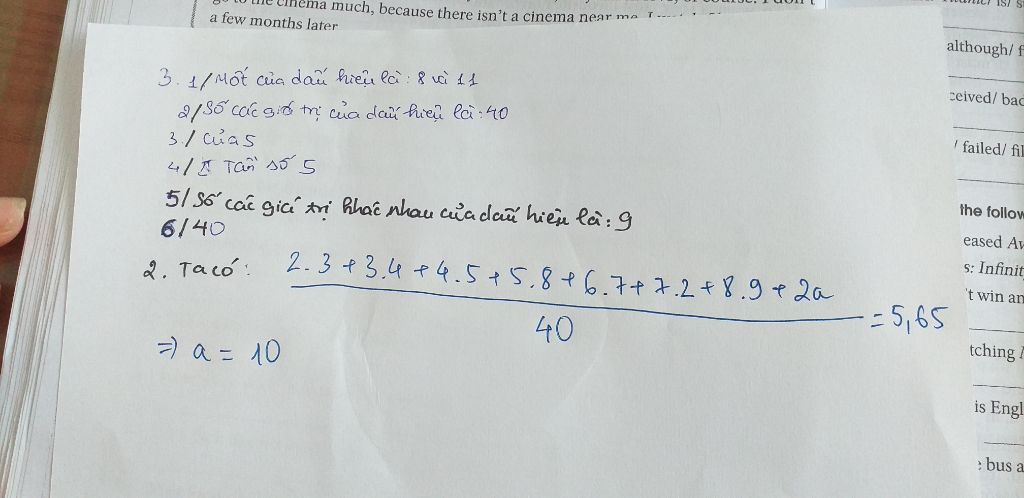 go to the cinema much, because there isn't a cinema near me
a few months later
although/ f
ceived/ bac
/ failed/ fil
the follow
eased Av
s: Infinit
't win an
tching
is Engl
bus a
3. 1/ Mốt của dấu hiệu là : 8 và 11
2/ Số các giá trị của dấu hiệu là : 40
3./ của 5
4/ Tần số 5
5/ Số các giá trị khác nhau của dấu hiệu là : 9
6/ 40
2. Ta có : 2.3 + 3.4 + 4.5 + 5.8 + 6.7 + 7.2 + 8.9 + 2a
40
= 5,65
=> a = 10